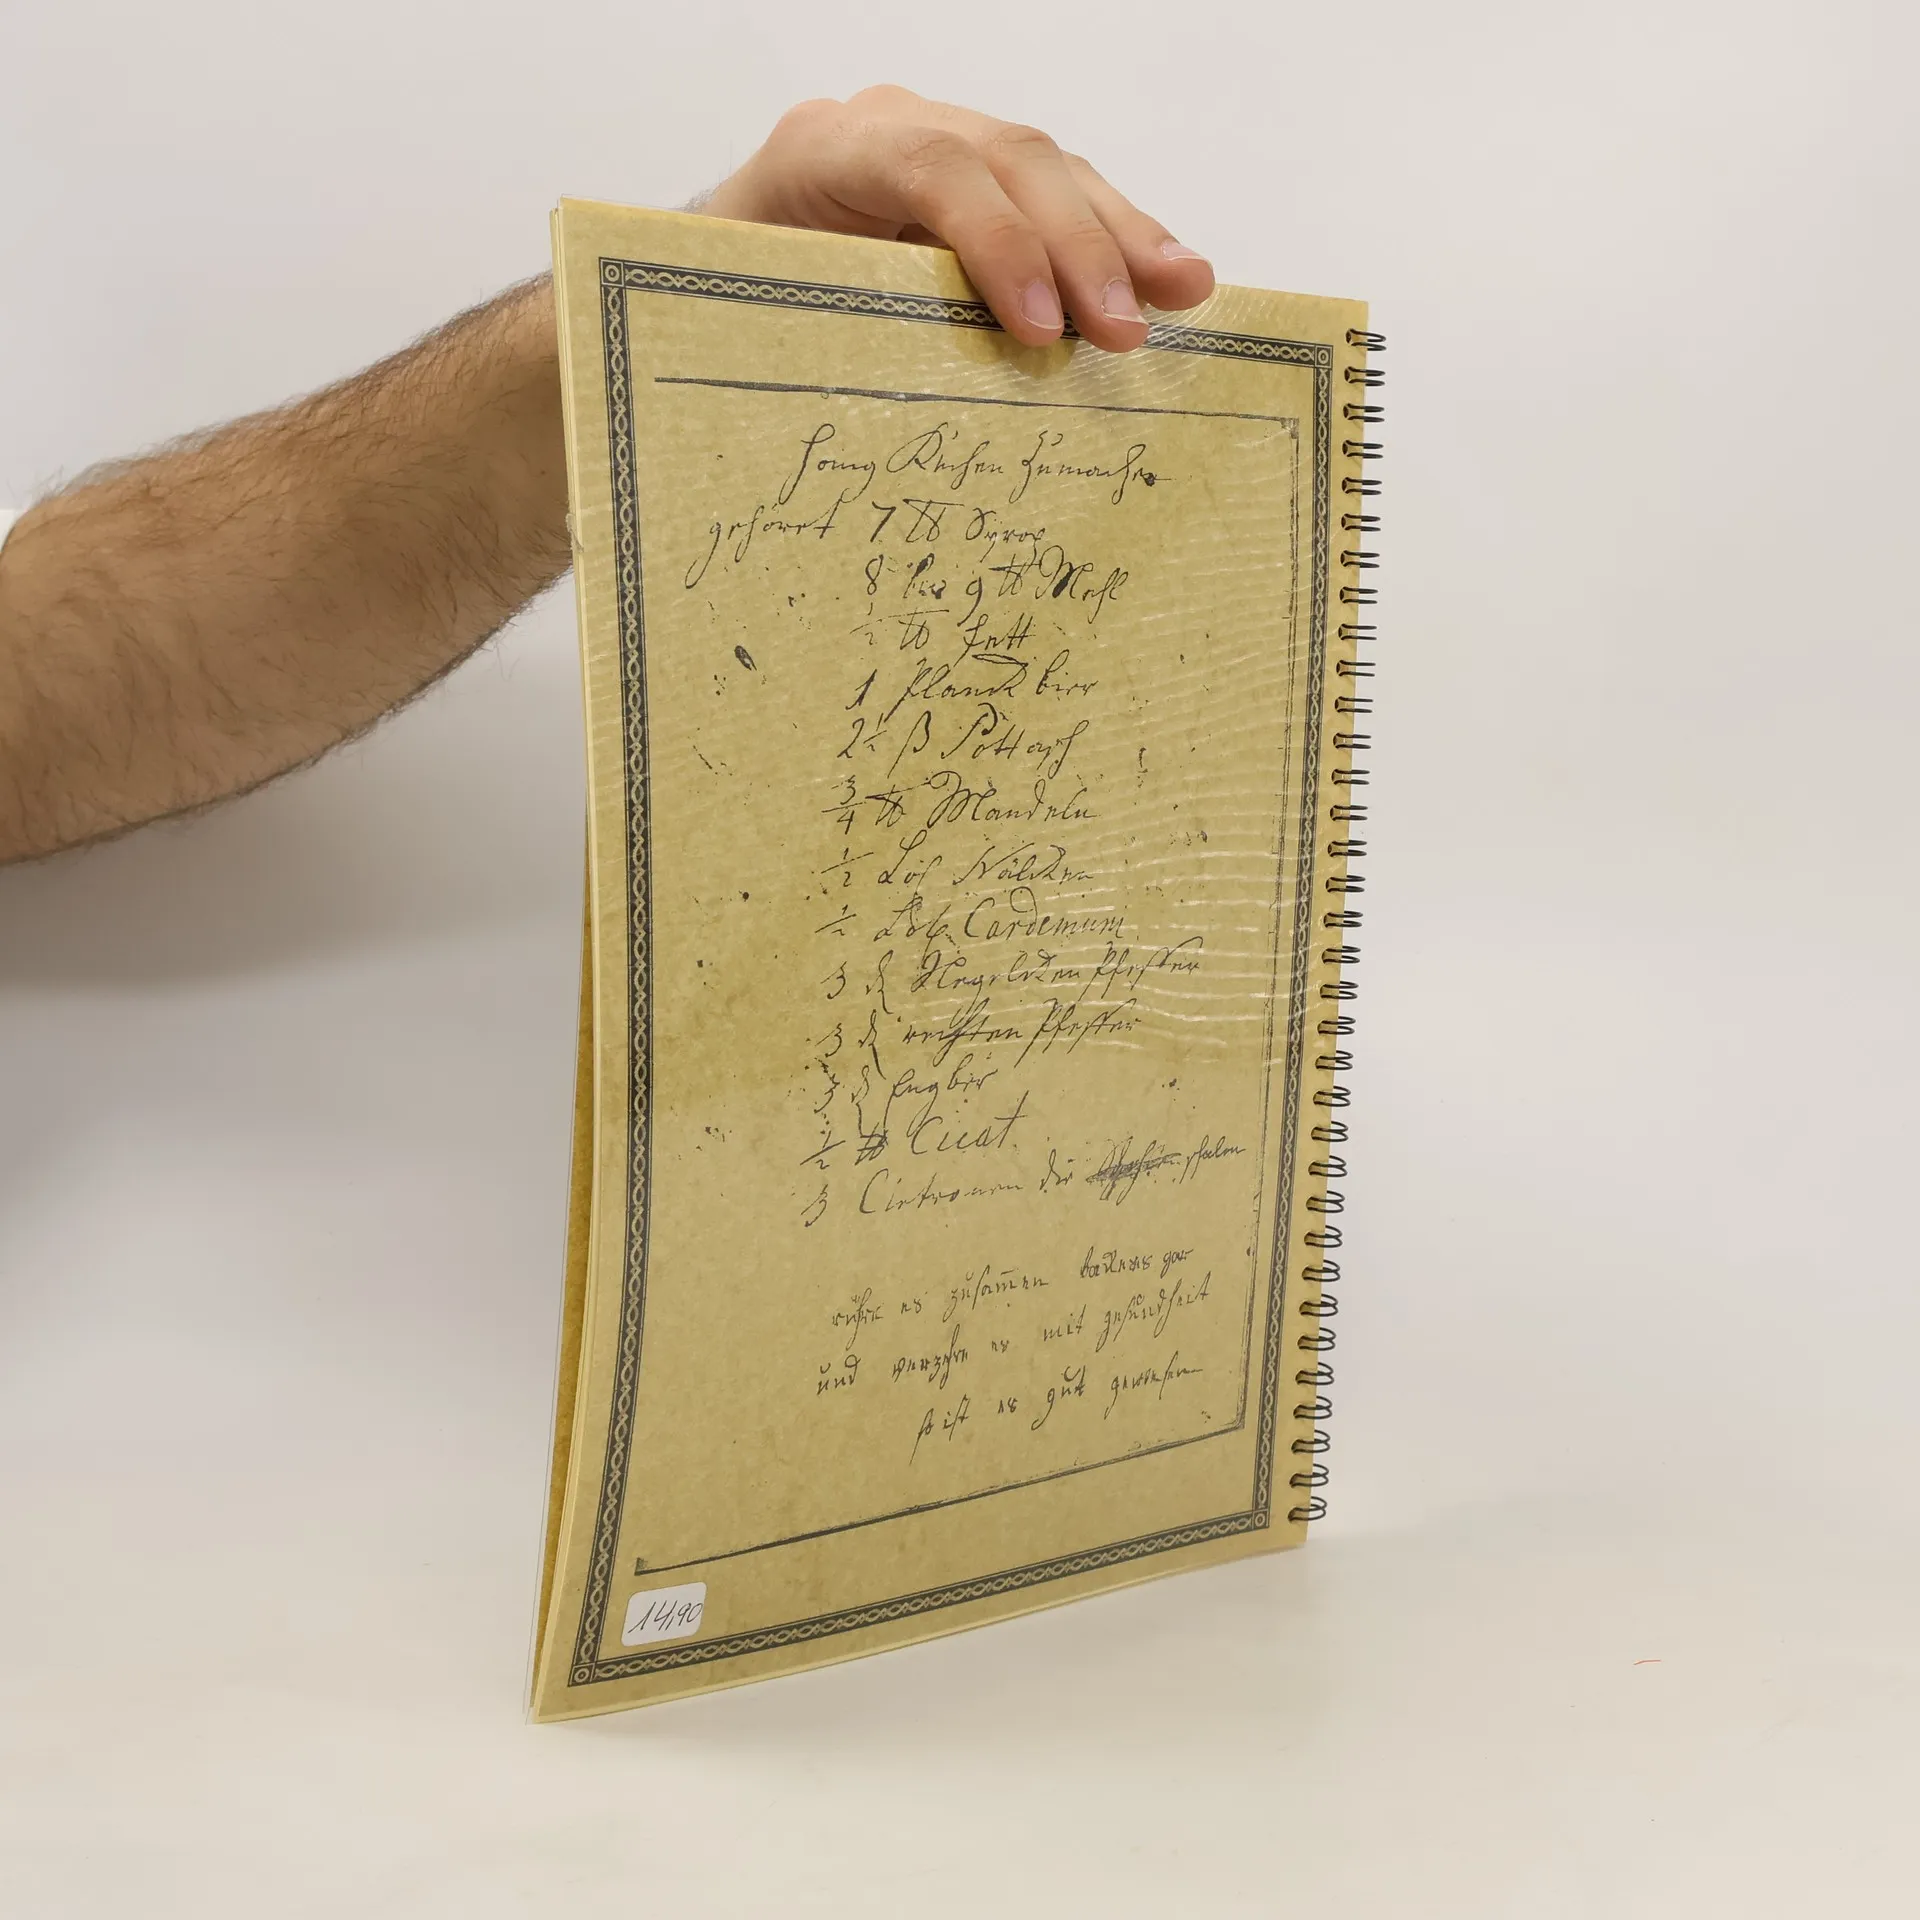 Honig Kuchen zu machen
gehöret 7 ℔ Syrop
8 bis 9 ℔ Mehl
1/2 ℔ Fett
1 Planck bier
2 1/2 ß Pottasch
3/4 ℔ Mandeln
1/2 Loth Nälcken
1/2 Loth Cardemum
3 Negelcken Pfeffer
3 rechten Pfeffer
3 Engber
1/2 ℔ Cicat
3 Cietronen die schalen
rühre es zusamen backens gar
und verzehre es mit gesundheit
so ist es gut gewesen
14,90